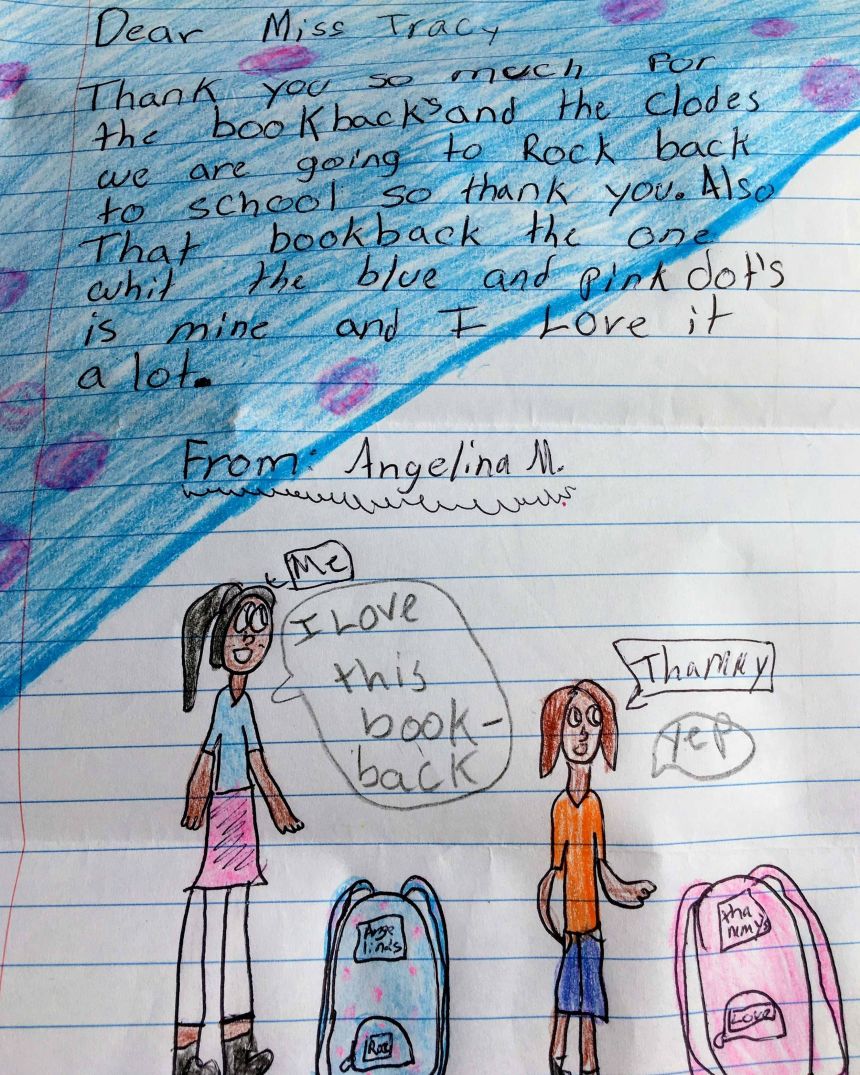 Dear Miss Tracy
Thank you so much For
the bookback's and the clodes
we are going to Rock back
to school so thank you. Also
That bookback the one
whit the blue and pink dot's
is mine and I Love it
a lot.
From: Angelina M.
Me
I Love
this
book-
back
Thammy
Yep
Ange
lina's
Roc
tha
mmy's
Love